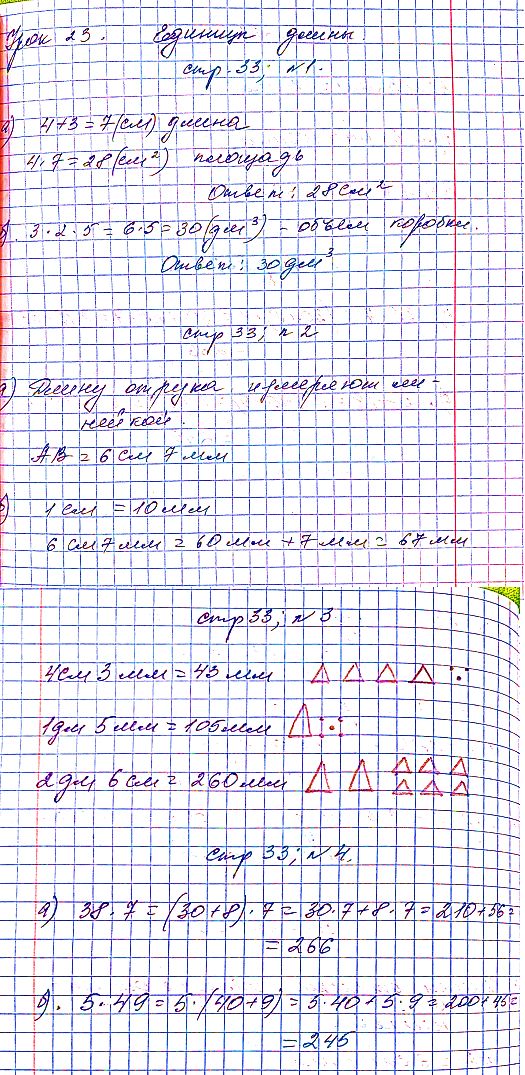 Урок 23. Единицы длины.
стр. 33; №1.
а) 4+3=7(см) длина
4·7=28(см²) площадь
Ответ: 28см²
б). 3·2·5=6·5=30(дм³) - объём коробки.
Ответ: 30дм³
стр 33; №2
а) Длину отрезка измеряют ли-
нейкой.
АВ = 6 см 7 мм
б) 1 см = 10 мм
6 см 7 мм = 60 мм + 7 мм = 67 мм
стр 33; №3
4см 3 мм = 43 мм
1дм 5 мм = 105мм
2 дм 6 см = 260 мм
стр 33; №4.
а) 38·7=(30+8)·7=30·7+8·7=210+56=
=266
б). 5·49=5·(40+9)=5·40+5·9=200+45=
=245